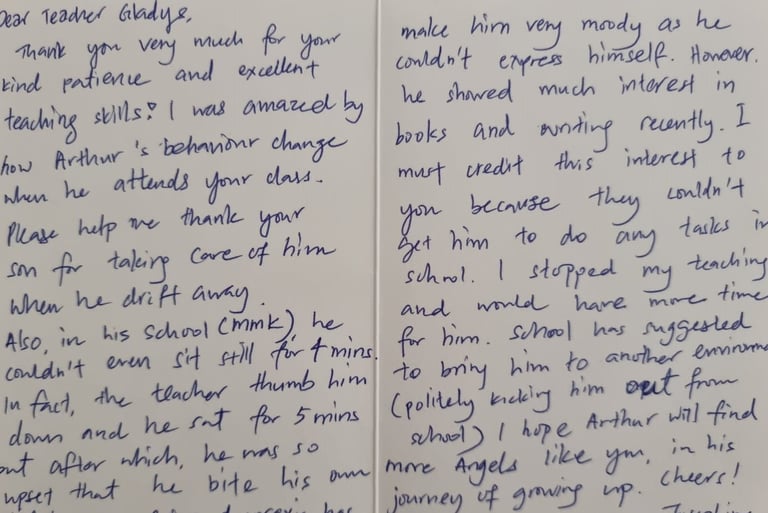 Dear Teacher Gladys,
Thank you very much for your
kind patience and excellent
teaching skills! I was amazed by
how Arthur's behaviour change
when he attends your class.
Please help me thank your
son for taking care of him
when he drift away.
Also, in his school (mmk), he
couldn't even sit still for 4 mins.
In fact, the teacher thumb him
down and he sat for 5 mins
out after which, he was so
upset that he bite his own
has
make him very moody as he
couldn't express himself. However.
he showed much interest in
books and writing recently. I
must credit this interest to
you because they couldn't
get him to do any tasks in
school. I stopped my teaching
and would have more time
for him. School has suggested
to bring him to another environm
(politely kicking him out from
school) I hope Arthur will find
more Angels like you, in his
journey of growing up. Cheers!